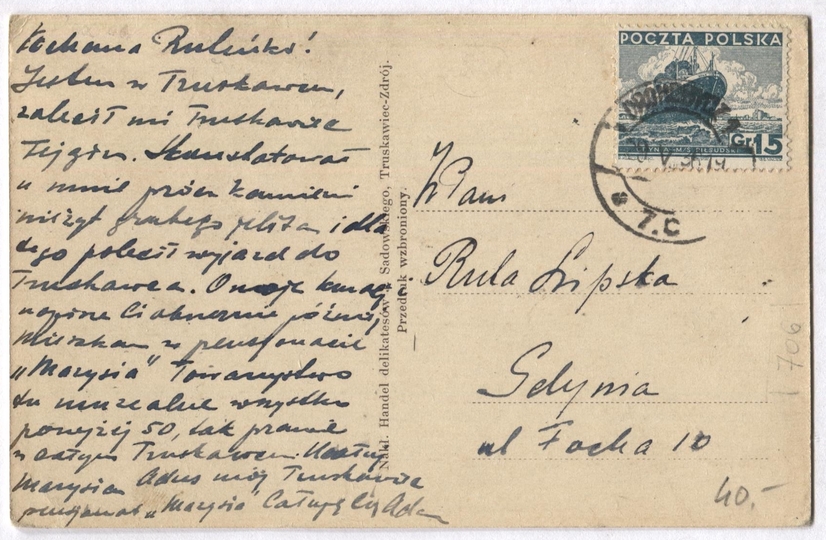 Kochana Ruleńko!
Jestem w Truskawcu,
zalecił mi Truskawiec
Konstatował
u mnie prócz kamieni
nieżyt grubego jelita i dla
tego polecił wyjazd do
Truskawca. O mojej
napiszę Ci obszernie później,
mieszkam w pensjonacie
„Marysia" Towarzystwo
tu wszystko
powyżej 50, tak prawie
w całym Truskawcu.
Marysia Adres mój Truskawiec
pensjonat „Marysia" Całuję Cię Adam
Nakł. Handel delikatesów Sadowskiego, Truskawiec-Zdrój.
Przedruk wzbroniony.
POCZTA POLSKA
Gr 15
7.C
WPani
Rula Lipska
Gdynia
ul Focha 10
706
40.-